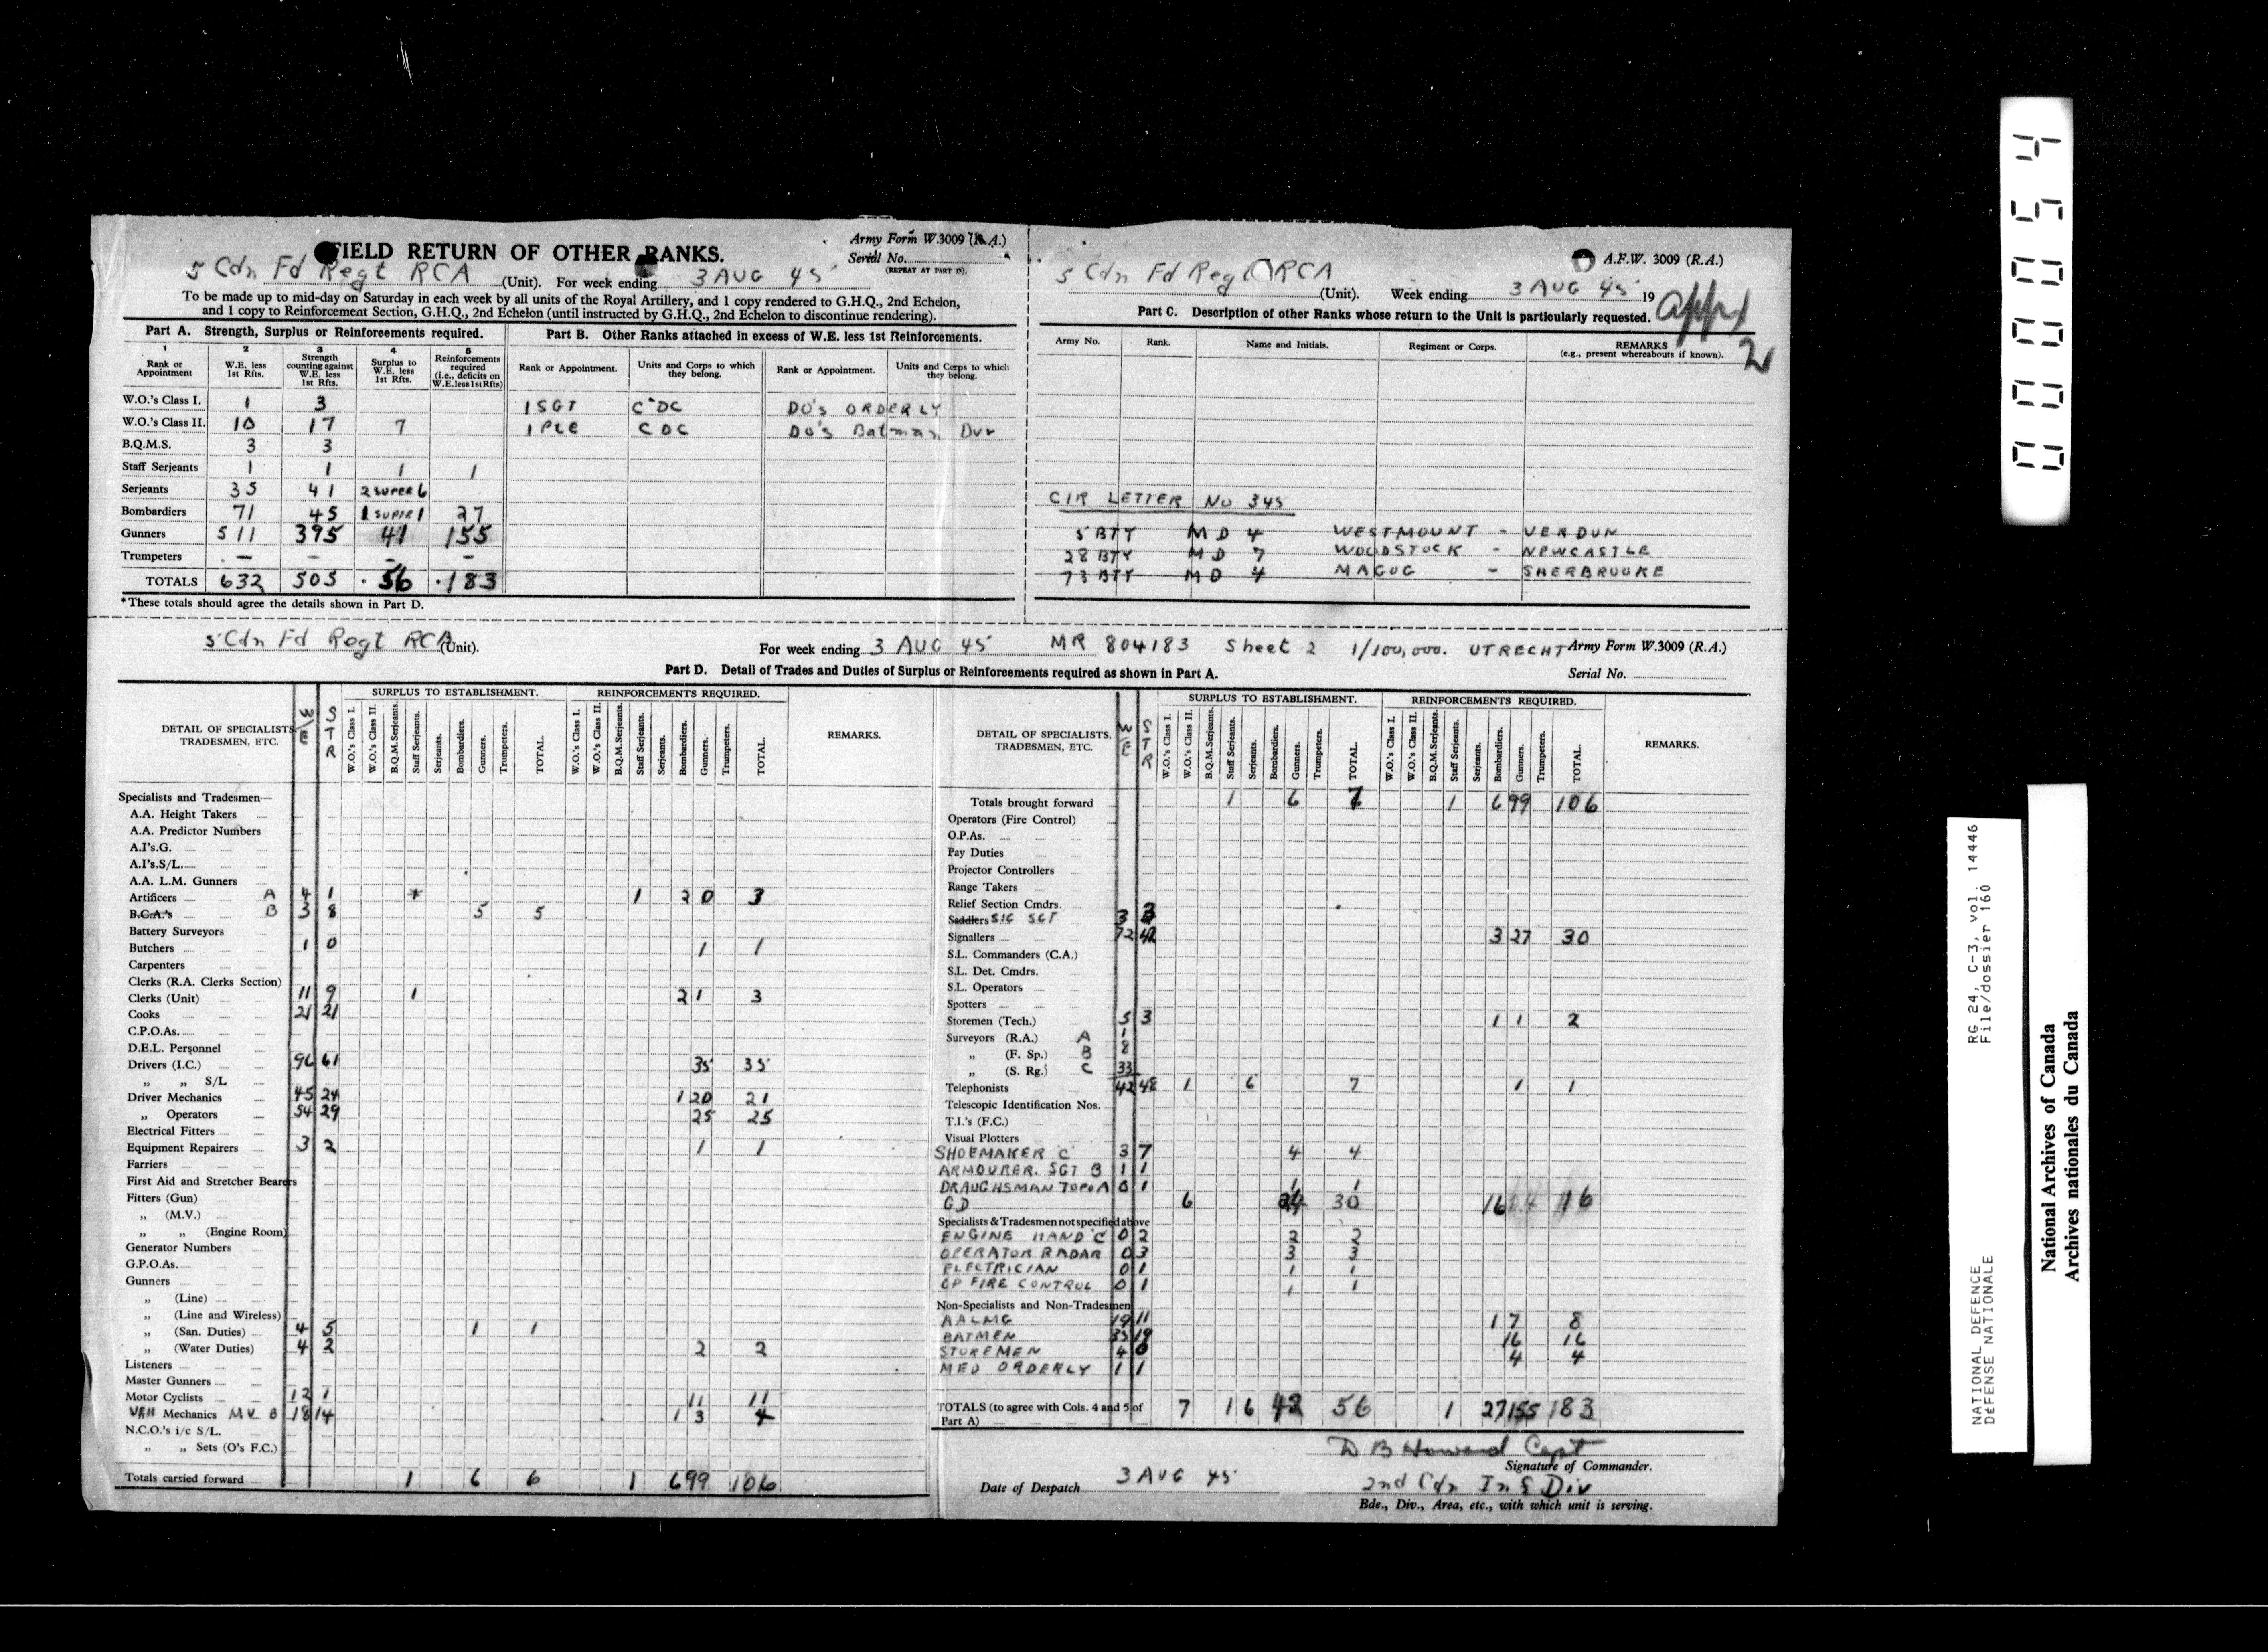 FIELD RETURN OF OTHER RANKS.
Army Form W.3009 (R.A.)
Serial No.
(REPEAT AT PART D).
5 Cdn Fd Regt RCA (Unit). For week ending 3 AUG 45
To be made up to mid-day on Saturday in each week by all units of the Royal Artillery, and 1 copy rendered to G.H.Q., 2nd Echelon,
and 1 copy to Reinforcement Section, G.H.Q., 2nd Echelon (until instructed by G.H.Q., 2nd Echelon to discontinue rendering).
Part A. Strength, Surplus or Reinforcements required.
1 2 3 4 5
Rank or Appointment
W.E. less 1st Rfts.
Strength counting against W.E. less 1st Rfts.
Surplus to W.E. less 1st Rfts.
Reinforcements required (i.e., deficits on W.E. less 1st Rfts)
W.O.'s Class I. 1 3
W.O.'s Class II. 10 17 7
B.Q.M.S. 3 3
Staff Serjeants 1 1 1 1
Serjeants 35 41 2 SUPER 6
Bombardiers 71 45 1 SUPER 1 27
Gunners 511 395 41 155
Trumpeters — — — —
TOTALS 632 505 56 183
*These totals should agree the details shown in Part D.
Part B. Other Ranks attached in excess of W.E. less 1st Reinforcements.
Rank or Appointment.
Units and Corps to which they belong.
Rank or Appointment.
Units and Corps to which they belong.
1 SGT CDC DO's ORDERLY
1 Pte CDC DO's Batman Dvr
A.F.W. 3009 (R.A.)
5 Cdn Fd Regt RCA (Unit). Week ending 3 AUG 45 19
appx 2
Part C. Description of other Ranks whose return to the Unit is particularly requested.
Army No. Rank. Name and Initials. Regiment or Corps. REMARKS
(e.g., present whereabouts if known).
CIR LETTER No 345
5 BTY MD 4 WESTMOUNT - VERDUN
28 BTY MD 7 WOODSTOCK - NEWCASTLE
73 BTY MD 4 MAGOG - SHERBROOKE
5 Cdn Fd Regt RCA (Unit). For week ending 3 AUG 45 MR 804183 Sheet 2 1/100,000. UTRECHT Army Form W.3009 (R.A.)
Part D. Detail of Trades and Duties of Surplus or Reinforcements required as shown in Part A.
Serial No.
DETAIL OF SPECIALISTS TRADESMEN, ETC.
W/E
STR
SURPLUS TO ESTABLISHMENT.
W.O.'s Class I. W.O.'s Class II. B.Q.M.Serjeants. Staff Serjeants. Serjeants. Bombardiers. Gunners. Trumpeters. TOTAL.
REINFORCEMENTS REQUIRED.
W.O.'s Class I. W.O.'s Class II. B.Q.M.Serjeants. Staff Serjeants. Serjeants. Bombardiers. Gunners. Trumpeters. TOTAL.
REMARKS.
Specialists and Tradesmen—
A.A. Height Takers
A.A. Predictor Numbers
A.I's.G.
A.I's.S/L.
A.A. L.M. Gunners
Artificers A 4 1 * 1 2 0 3
B.C.A.'s B 3 8 5 5
Battery Surveyors
Butchers 1 0 1 1
Carpenters
Clerks (R.A. Clerks Section)
Clerks (Unit) 11 9 1 2 1 3
Cooks 21 21
C.P.O.As.
D.E.L. Personnel
Drivers (I.C.) 96 61 35 35
„ „ S/L
Driver Mechanics 45 24 1 20 21
„ Operators 54 29 25 25
Electrical Fitters
Equipment Repairers 3 2 1 1
Farriers
First Aid and Stretcher Bearers
Fitters (Gun)
„ (M.V.)
„ „ (Engine Room)
Generator Numbers
G.P.O.As.
Gunners
„ (Line)
„ (Line and Wireless)
„ (San. Duties) 4 5 1 1
„ (Water Duties) 4 2 2 2
Listeners
Master Gunners
Motor Cyclists 12 1 11 11
VEH Mechanics M.V. B 18 14 1 3 4
N.C.O.'s i/c S/L.
„ „ Sets (O's F.C.)
Totals carried forward 1 6 6 1 6 99 106
DETAIL OF SPECIALISTS, TRADESMEN, ETC.
W/E
STR
SURPLUS TO ESTABLISHMENT.
W.O.'s Class I. W.O.'s Class II. B.Q.M.Serjeants. Staff Serjeants. Serjeants. Bombardiers. Gunners. Trumpeters. TOTAL.
REINFORCEMENTS REQUIRED.
W.O.'s Class I. W.O.'s Class II. B.Q.M.Serjeants. Staff Serjeants. Serjeants. Bombardiers. Gunners. Trumpeters. TOTAL.
REMARKS.
Totals brought forward 1 6 7 1 6 99 106
Operators (Fire Control)
O.P.As.
Pay Duties
Projector Controllers
Range Takers
Relief Section Cmdrs.
Saddlers SIG SGT 3 3
Signallers 72 42 3 27 30
S.L. Commanders (C.A.)
S.L. Det. Cmdrs.
S.L. Operators
Spotters
Storemen (Tech.) 5 3 1 1 2
Surveyors (R.A.) A 1
„ (F. Sp.) B 8
„ (S. Rg.) C 33
Telephonists 42 48 1 6 7 1 1
Telescopic Identification Nos.
T.I.'s (F.C.)
Visual Plotters
SHOEMAKER C 3 7 4 4
ARMOURER. SGT B 1 1
DRAUGHSMAN TOPO A 0 1 1 1
GD 6 30 16 16
Specialists & Tradesmen not specified above
ENGINE HAND 'C 0 2 2 2
OPERATOR RADAR 0 3 3 3
ELECTRICIAN 0 1 1 1
OP FIRE CONTROL 0 1 1 1
Non-Specialists and Non-Tradesmen
AALMG 19 11 1 7 8
BATMEN 35 19 16 16
STOREMEN 4 0 4 4
MED ORDERLY 1 1
TOTALS (to agree with Cols. 4 and 5 of Part A) 7 1 6 42 56 1 27 155 183
D B Howard Capt
Signature of Commander.
Date of Despatch 3 AUG 45
2nd Cdn Inf Div
Bde., Div., Area, etc., with which unit is serving.
000054
NATIONAL DEFENCE RG 24, C-3, vol. 14446
DÉFENSE NATIONALE File/dossier 160
National Archives of Canada
Archives nationales du Canada